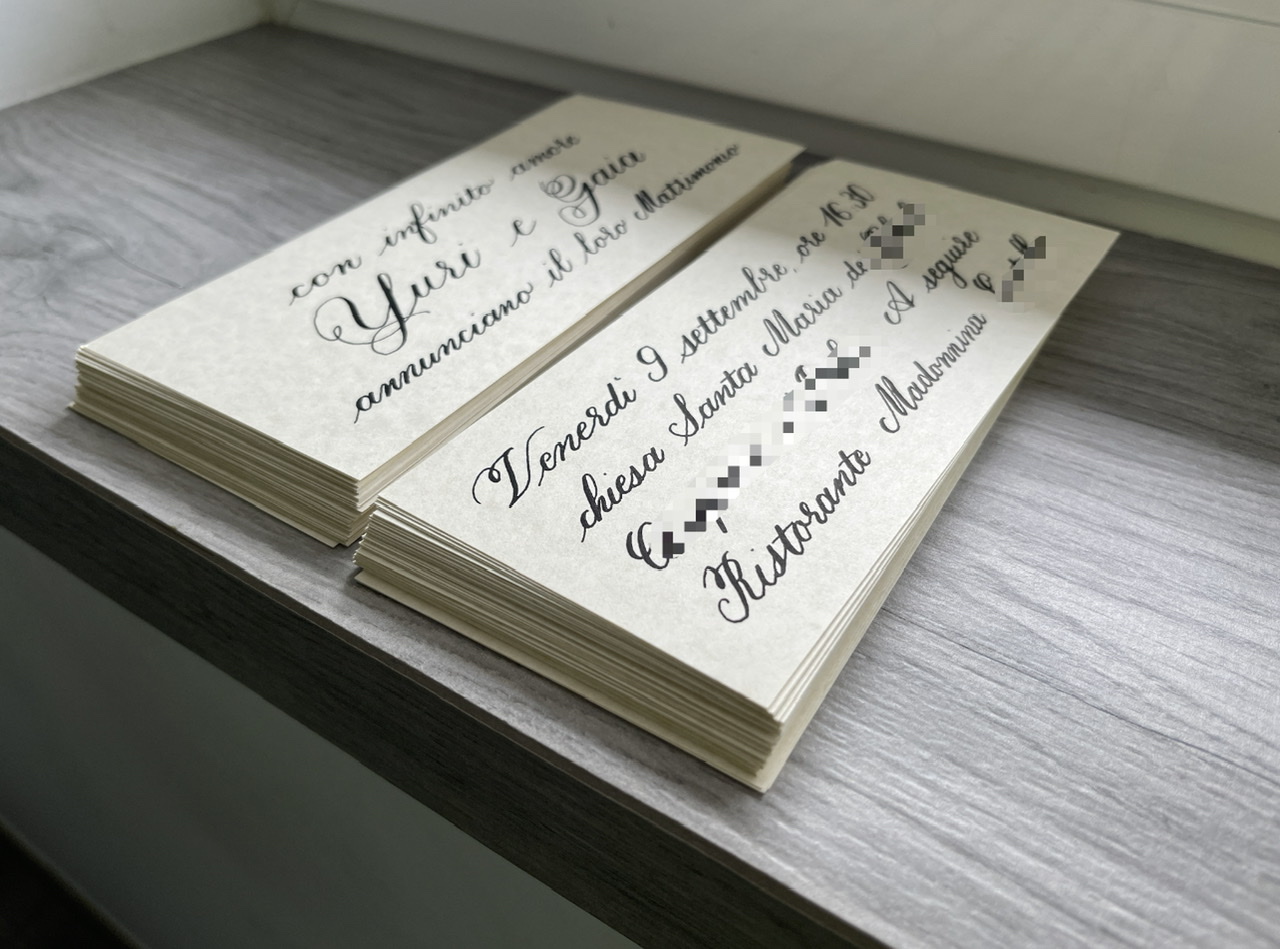 con infinito amore
Yuri e Gaia
annunciano il loro Matrimonio
Venerdì 9 settembre, ore 16.30
chiesa Santa Maria dei
A seguire
Ristorante Madonnina